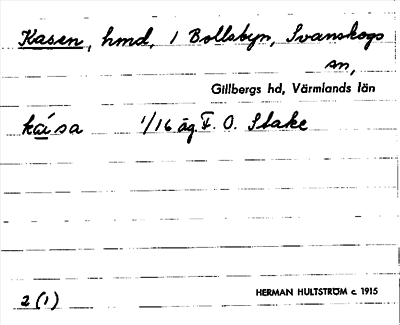 Kasen, hmd, 1 Bollsbyn, Svanskogs
sn,
Gillbergs hd, Värmlands län
ka᷇sa 1/16 äg. F. O. Stake
2 (1)
HERMAN HULTSTRÖM c. 1915